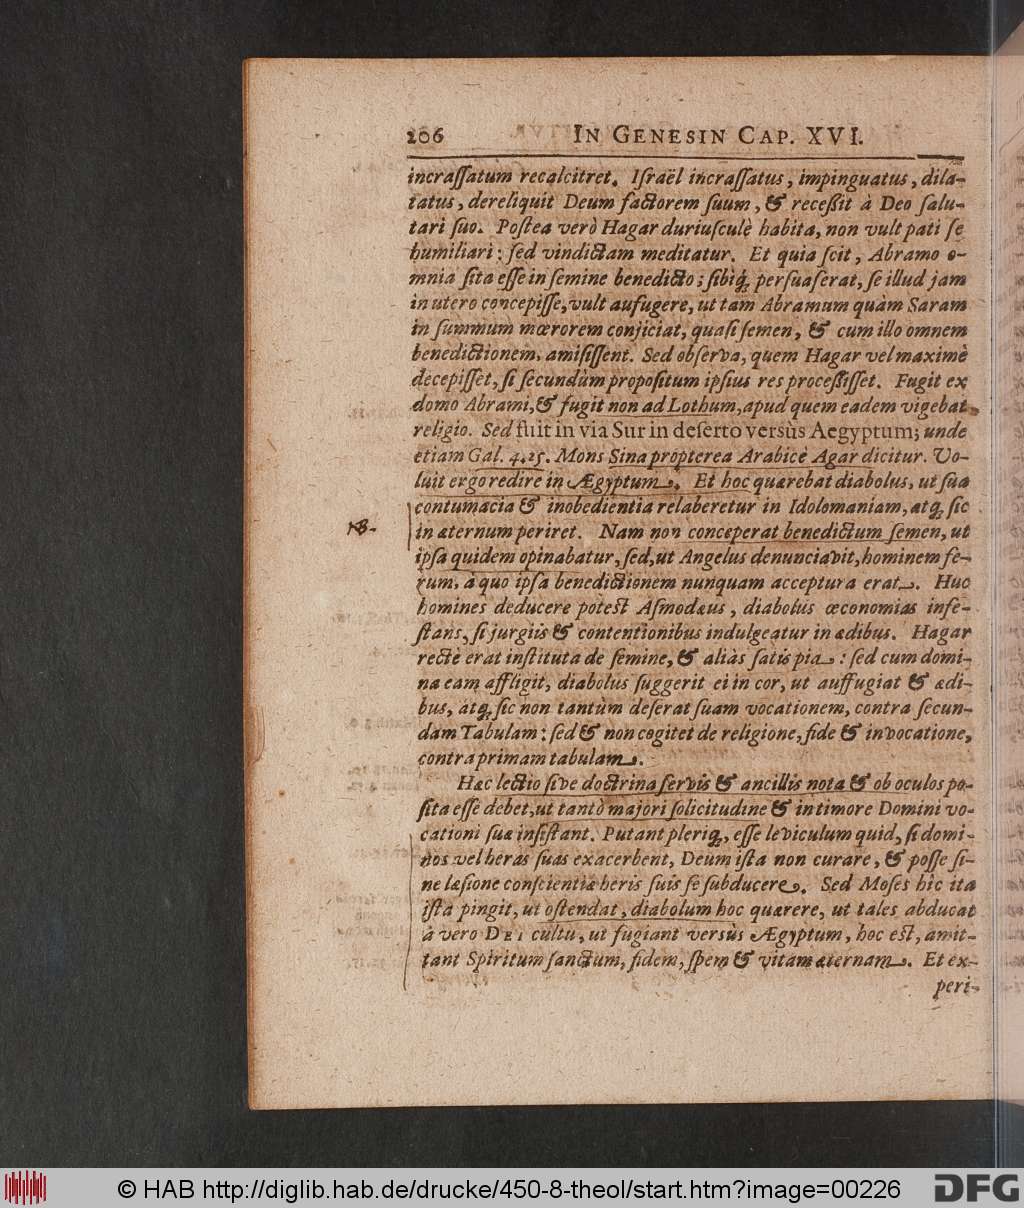 206 IN GENESIN CAP. XVI.
incraſſatum recalcitret. Iſraël incraſſatus, impinguatus, dila-
tatus, dereliquit Deum factorem ſuum, & receßit à Deo ſalu-
tari ſuo. Poſtea verò Hagar duriuſculè habita, non vult pati ſe
humiliari: ſed vindictam meditatur. Et quia ſcit, Abramo o-
mnia ſita eſſe in ſemine benedicto; ſibiq́; perſuaſerat, ſe illud jam
in utero concepiſſe, vult aufugere, ut tam Abramum quàm Saram
in ſummum mœrorem conjiciat, quaſi ſemen, & cum illo omnem
benedictionem, amiſiſſent. Sed obſerva, quem Hagar vel maximè
decepiſſet, ſi ſecundùm propoſitum ipſius res proceßiſſet. Fugit ex
domo Abrami, & fugit non ad Lothum, apud quem eadem vigebat
religio. Sed fuit in via Sur in deſerto versùs Aegyptum; unde
etiam Gal. 4. 25. Mons Sina propterea Arabicè Agar dicitur. Vo-
luit ergo redire in Ægyptum. Et hoc quærebat diabolus, ut ſua
contumacia & inobedientia relaberetur in Idolomaniam, atq́; ſic
NB.
in æternum periret. Nam non conceperat benedictum ſemen, ut
ipſa quidem opinabatur, ſed, ut Angelus denunciavit, hominem fe-
rum, à quo ipſa benedictionem nunquam acceptura erat. Huc
homines deducere poteſt Aſmodæus, diabolus œconomias infe-
ſtans, ſi jurgiis & contentionibus indulgeatur in ædibus. Hagar
rectè erat inſtituta de ſemine, & aliàs ſatis pia: ſed cum domi-
na eam affligit, diabolus ſuggerit ei in cor, ut auffugiat & ædi-
bus, atq́; ſic non tantùm deſerat ſuam vocationem, contra ſecun-
dam Tabulam: ſed & non cogitet de religione, fide & invocatione,
contra primam tabulam.
Hæc lectio ſive doctrina ſervis & ancillis nota & ob oculos po-
ſita eſſe debet, ut tantò majori ſolicitudine & in timore Domini vo-
cationi ſuæ inſiſtant. Putant pleriq́;, eſſe leviculum quid, ſi domi-
nos vel heras ſuas exacerbent, Deum iſta non curare, & poſſe ſi-
ne læſione conſcientiæ heris ſuis ſe ſubducere. Sed Moſes hîc ita
iſta pingit, ut oſtendat, diabolum hoc quærere, ut tales abducat
à vero DEI cultu, ut fugiant versùs Ægyptum, hoc eſt, amit-
tant Spiritum ſanctum, fidem, ſpem & vitam æternam. Et ex-
peri-
© HAB http://diglib.hab.de/drucke/450-8-theol/start.htm?image=00226
DFG